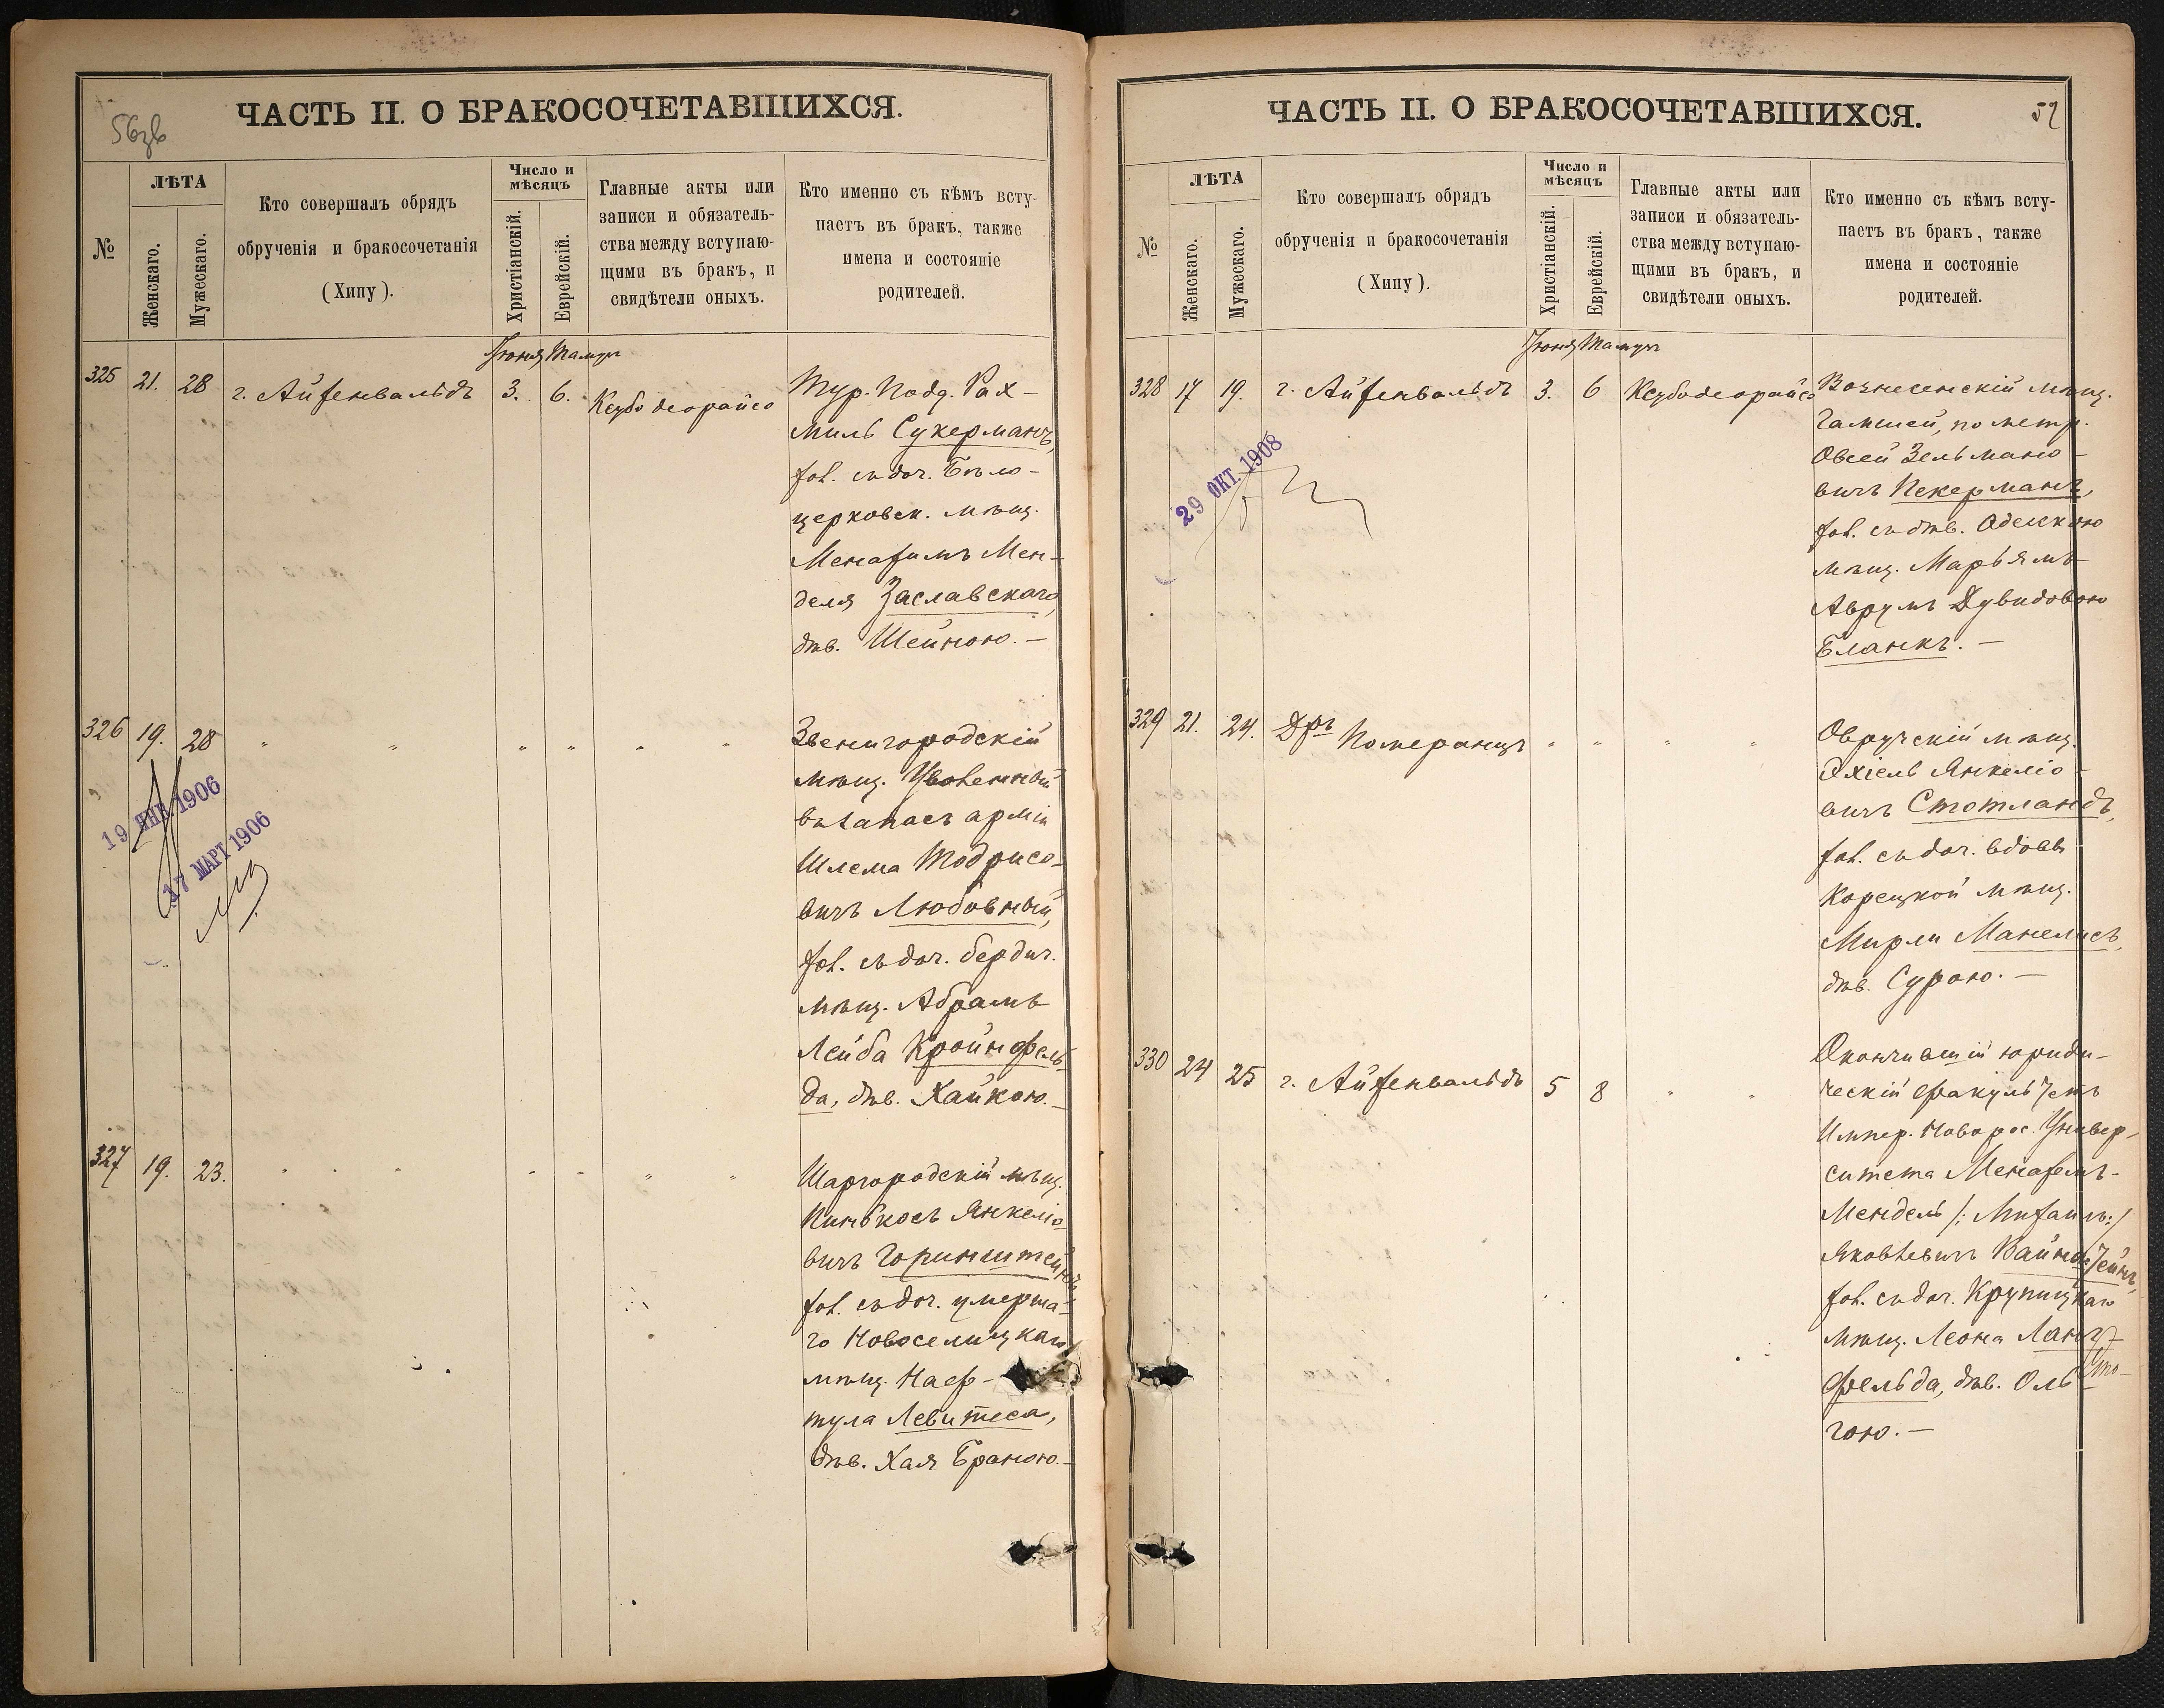 56об
ЧАСТЬ II. О БРАКОСОЧЕТАВШИХСЯ.
№
ЛѢТА
Женскаго.
Мужескаго.
Кто совершалъ обрядъ
обрученія и бракосочетанія
(Хипу).
Число и
мѣсяцъ
Христіанскій.
Еврейскій.
Главные акты или
записи и обязатель-
ства между вступаю-
щими въ бракъ, и
свидѣтели оныхъ.
Кто именно съ кѣмъ всту-
паетъ въ бракъ, также
имена и состояніе
родителей.
Іюня Тамуз
325 21. 28 г. Айхенвальдъ 3. 6. Ксубо деорайсо
Тур. Подд. Рах-
миль Сукерманъ,
хол. съ доч. Бѣло-
церковск. мѣщ.
Менахимъ Мен-
деля Заславскаго,
дѣв. Шейною.—
326 19. 28 " " " " " "
Звенигородскій
мѣщ. Уволенный
въ запасъ арміи
Шлема Тодрисо-
вичъ Любовный,
хол. съ доч. бердич.
мѣщ. Абрамъ
Лейба Кройнфель-
да, дѣв. Хайкою.—
19 ЯНВ. 1906
17 МАРТ 1906
327 19. 23. " " " " " "
Шаргородскій мѣщ.
Пинькосъ Янкеліо-
вичъ Горинштейнъ,
хол. съ доч. умерша-
го Новоселицкаго
мѣщ. Наф-
тула Левитеса,
дѣв. Хая Браною.—
57
ЧАСТЬ II. О БРАКОСОЧЕТАВШИХСЯ.
№
ЛѢТА
Женскаго.
Мужескаго.
Кто совершалъ обрядъ
обрученія и бракосочетанія
(Хипу).
Число и
мѣсяцъ
Христіанскій.
Еврейскій.
Главные акты или
записи и обязатель-
ства между вступаю-
щими въ бракъ, и
свидѣтели оныхъ.
Кто именно съ кѣмъ всту-
паетъ въ бракъ, также
имена и состояніе
родителей.
Іюня Тамуз
328 17 19. г. Айхенвальдъ 3. 6 Ксубо деорайсо
Вознесенскій мѣщ.
по метр.
Овсей Зельмано-
вичъ Пекерманъ,
хол. съ дѣв. Одесскою
мѣщ. Марьямъ
Аврумъ Дувидовою
Бланкъ.—
29 ОКТ. 1908
329 21. 24. Дръ Померанцъ " " " "
Овручскій мѣщ.
Эхіель Янкеліо-
вичъ Стотландъ,
хол. съ доч. вдовы
Корецкой мѣщ.
Мирли Манелисъ,
дѣв. Сурою.—
330 24 25 г. Айхенвальдъ 5 8 " "
Окончившій юриди-
ческій факультетъ
Импер. Новорос. Универ-
ситета Менахемъ-
Мендель /: Михаилъ:/
Яковлевичъ Вайнштейнъ,
хол. съ доч. Крупицкаго
мѣщ. Леона Ланг-
фельда, дѣв. Оль-
гою.—